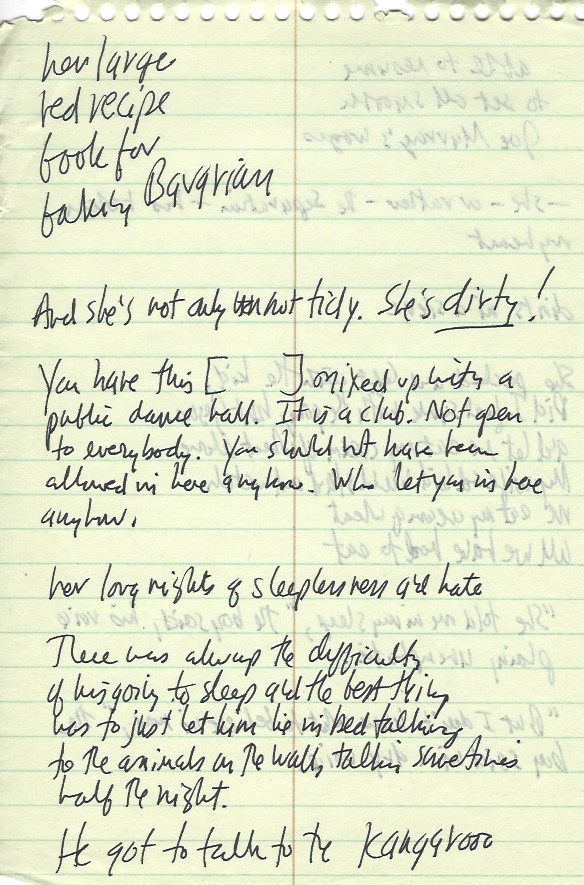 her large
red recipe
book for
baking Bavarian
And she's not only not tidy. She's dirty!
You have this [ ] mixed up with a
public dance hall. It is a club. Not open
to everybody. You should not have been
allowed in here anyhow. Who let you in here
anyhow.
her long nights of sleeplessness and hate
There was always the difficulty
of his going to sleep and the best thing
was to just let him lie in bed talking
to the animals on the walls, talking sometimes
half the night.
He got to talk to the Kangaroo